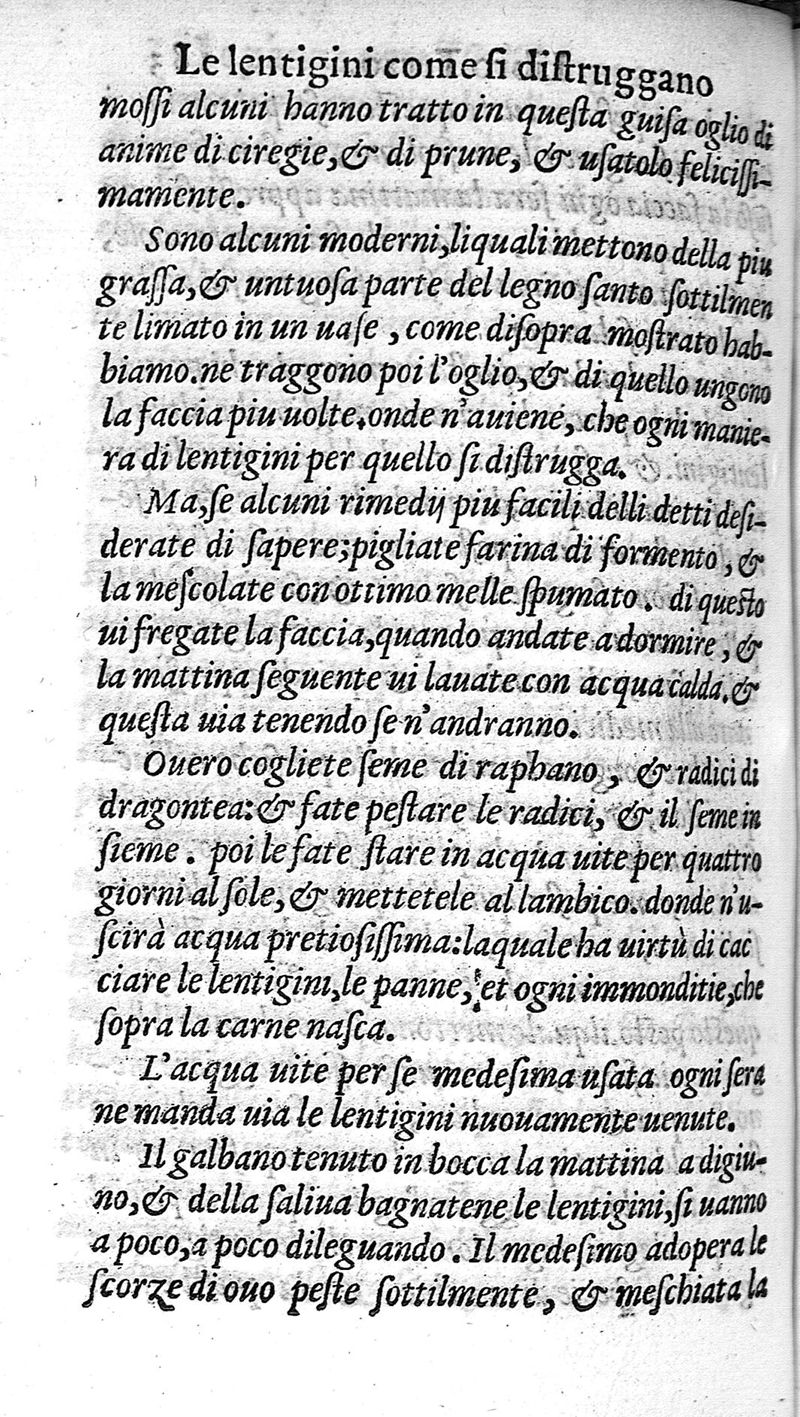 Le lentigini come si diſtruggano
moſſi alcuni hanno tratto in queſta guiſa oglio di
anime di ciregie,& di prune, & uſatolo feliciſſi-
mamente.
Sono alcuni moderni,liquali mettono della piu
graſſa,& untuoſa parte del legno ſanto ſottilmen
te limato in un uaſe , come diſopra moſtrato hab-
biamo.ne traggono poi l'oglio,& di quello ungono
la faccia piu uolte.onde n'auiene, che ogni manie-
ra di lentigini per quello ſi diſtrugga.
Ma,ſe alcuni rimedij piu facili delli detti deſi-
derate di ſapere;pigliate farina di formento , &
la meſcolate con ottimo melle ſpumato . di queſto
ui fregate la faccia,quando andate a dormire , &
la mattina ſeguente ui lauate con acqua calda.&
queſta uia tenendo ſe n'andranno.
Ouero cogliete ſeme di raphano , & radici di
dragontea:& fate peſtare le radici, & il ſeme in
ſieme . poi le fate ſtare in acqua uite per quattro
giorni al ſole,& mettetele al lambico. donde n'u-
ſcirà acqua pretioſiſſima:laquale ha uirtù di cac
ciare le lentigini,le panne, et ogni immonditie,che
ſopra la carne naſca.
L'acqua uite per ſe medeſima uſata ogni ſera
ne manda uia le lentigini nuouamente uenute.
Il galbano tenuto in bocca la mattina a digiu-
no,& della ſaliua bagnatene le lentigini,ſi uanno
a poco,a poco dileguando . Il medeſimo adopera le
ſcorze di ouo peſte ſottilmente, & meſchiata la